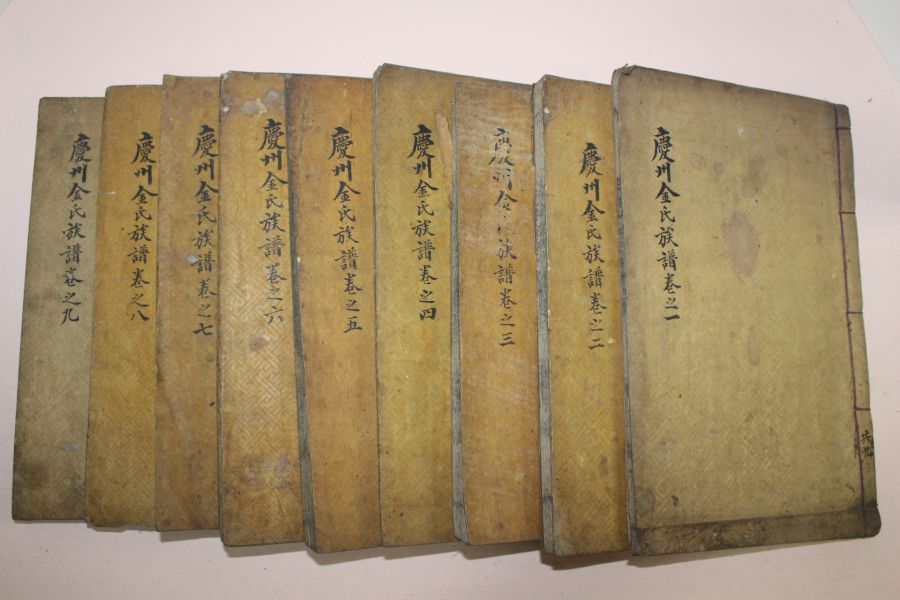 慶州金氏族譜卷之一
共九
慶州金氏族譜卷之二
慶州金氏族譜卷之三
慶州金氏族譜卷之四
慶州金氏族譜卷之五
慶州金氏族譜卷之六
慶州金氏族譜卷之七
慶州金氏族譜卷之八
慶州金氏族譜卷之九